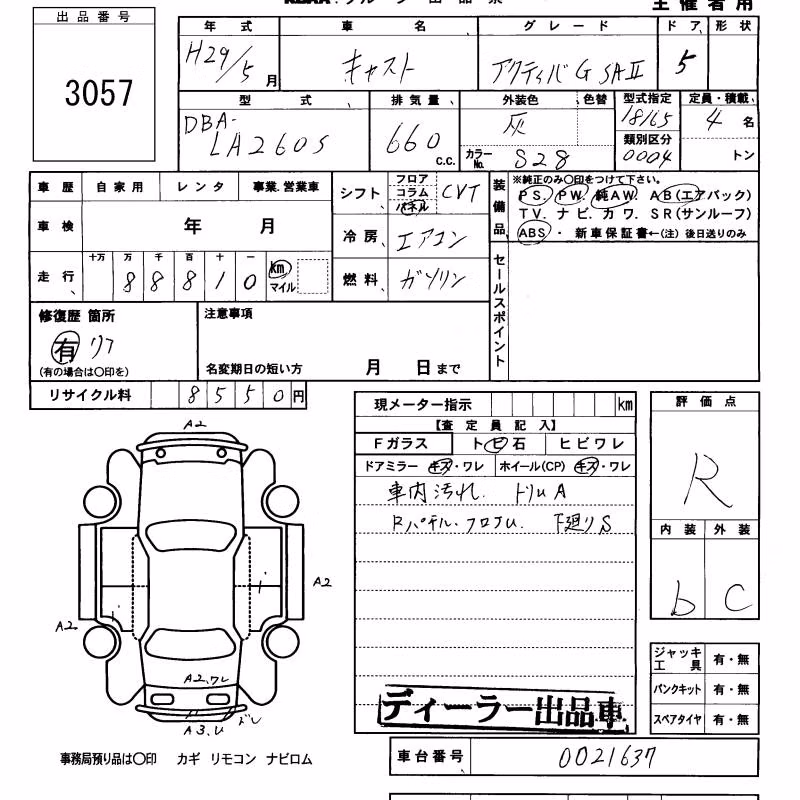 主催者用
出品番号
3057
年式 車名 グレード ドア 形状
H29/5月 キャスト アクティバG SAⅡ 5
型式 排気量 外装色 色替 型式指定 定員・積載
DBA-LA260S 660 c.c. 灰 18165 4名
カラーNo. S28 類別区分 0004 トン
車歴 自家用 レンタ 事業.営業車
シフト フロア コラム パネル CVT
装備品 ※純正のみ〇印をつけて下さい。
PS. PW. 純AW. AB(エアバック)
TV. ナビ. カワ. SR(サンルーフ)
ABS・ 新車保証書←(注)後日送りのみ
車検 年 月
冷房 エアコン
走行 十万 万 千 百 十 一
88810 km マイル
燃料 ガソリン
セールスポイント
修復歴 箇所
有 リア
(有の場合は〇印を)
注意事項
名変期日の短い方 月 日まで
リサイクル料 8550円
現メーター指示 km
【査定員記入】
Fガラス トビ石 ヒビワレ
ドアミラー キズ・ワレ ホイール(CP) キズ・ワレ
車内汚れ. トリムA
下廻りS
評価点
R
内装 外装
b C
A2
A2
A2
A2,ワレ
A3,U
ジャッキ工具 有・無
パンクキット 有・無
スペアタイヤ 有・無
ディーラー出品車
事務局預り品は〇印 カギ リモコン ナビロム
車台番号 0021637